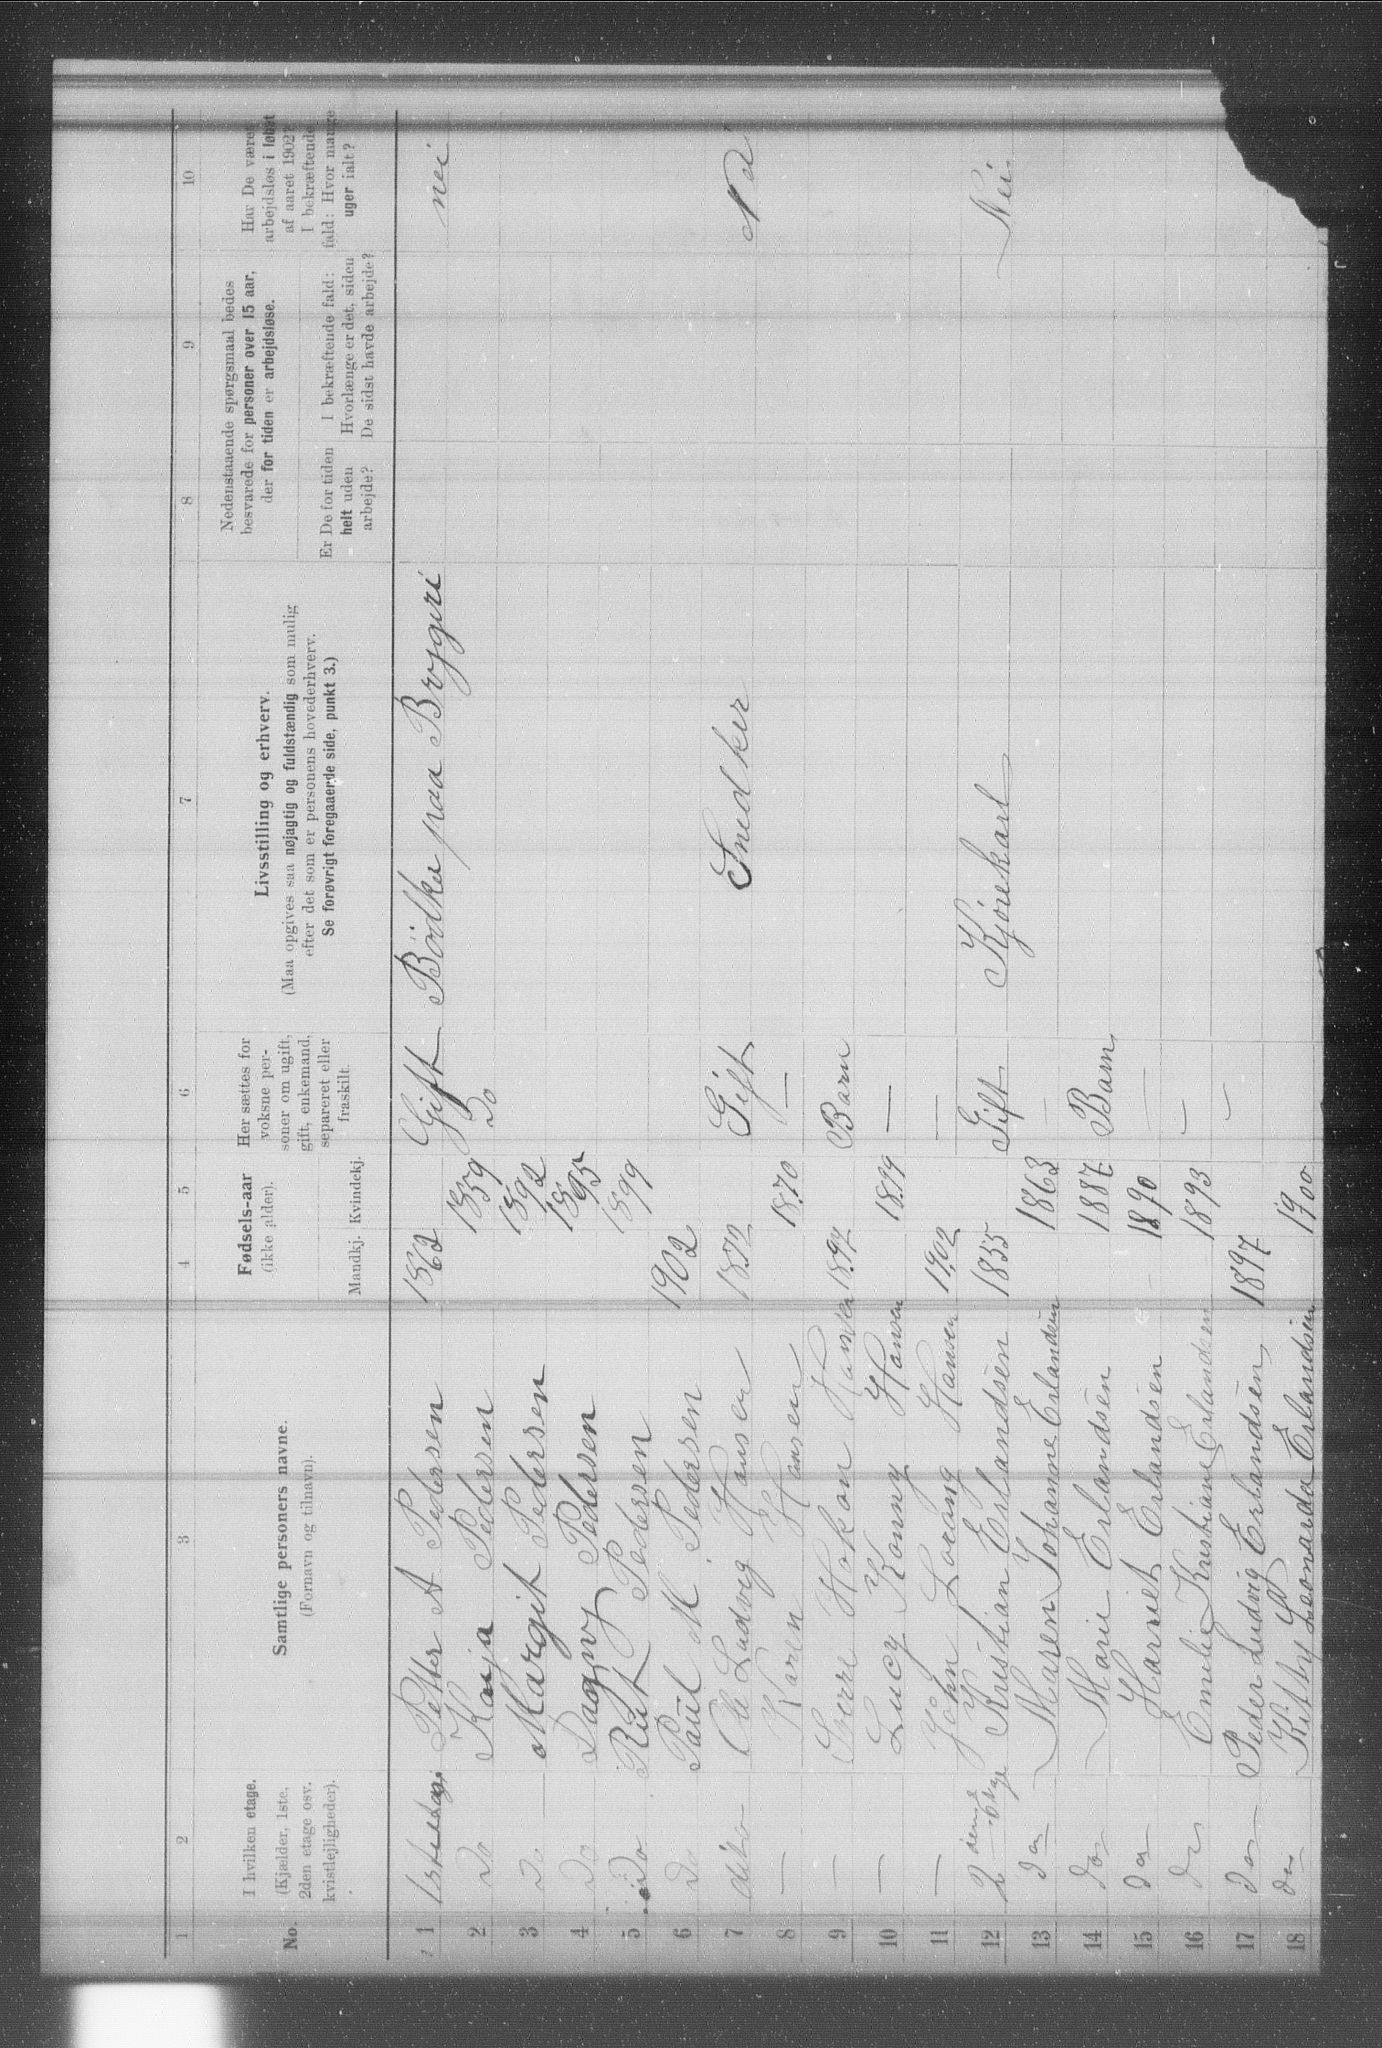 1 2 3 4 5 6 7 8 9 10
No.
I hvilken etage.
(Kjælder, 1ste,
2den etage osv.
kvistlejligheder).
Samtlige personers navne.
(Fornavn og tilnavn).
Fødsels-aar
(ikke alder).
Mandkj. Kvindekj.
Her sættes for
voksne per-
soner om ugift,
gift, enkemand,
separeret eller
fraskilt.
Livsstilling og erhverv.
(Maa opgives saa nøjagtig og fuldstændig som mulig
efter det som er personens hovederhverv.
Se forøvrigt foregaaende side, punkt 3.)
Nedenstaaende spørgsmaal bedes
besvarede for personer over 15 aar,
der for tiden er arbejdsløse.
Er De for tiden
helt uden
arbejde?
I bekræftende fald:
Hvorlænge er det, siden
De sidst havde arbejde?
Har De været
arbejdsløs i løbet
af aaret 1902?
I bekræftende
fald: Hvor mange
uger ialt?
1 Petter A Pedersen 1862 Gift Bödker paa Brygeri nei
2 Do Kaja Pedersen 1859 Do
3 Do Margit Pedersen 1892
4 Do Dagny Pedersen 1895
5 Do Rut Pedersen 1899
6 Do Paul M Pedersen 1902
7 dito Ole Ludvig Hansen 1872 Gift Snedker
8 — Karen Hansen 1870 —
9 — Sverre Hokon Hansen 1897 Barn
10 — Lucy Konny Hansen 1899 —
11 — John Lorang Hansen 1902 —
12 2 Kristian Erlandsen 1855 Gift Kjørekarl Nei
13 do Maren Johanne Erlandsen 1863 —
14 do Marie Erlandsen 1887 Barn
15 do Harriet Erlandsen 1890 —
16 do Emilie Kristiane Erlandsen 1893 —
17 do Peder Ludvig Erlandsen 1897 —
18 do Kitty Leonarda Erlandsen 1900